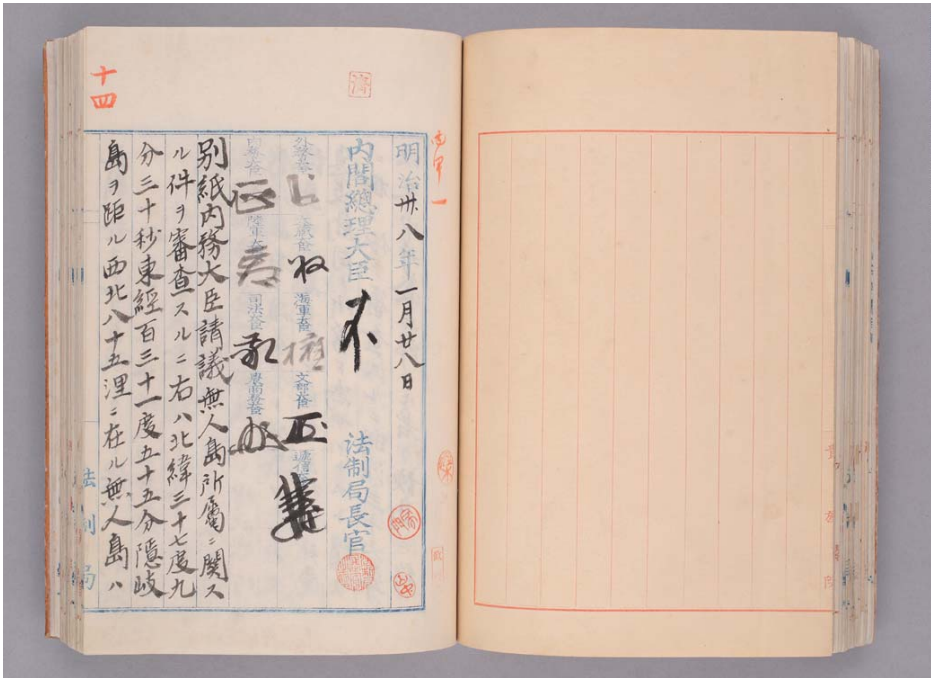 明治卅八年一月廿八日
内閣總理大臣
法制局長官
外務大臣
大蔵大臣
海軍大臣
文部大臣
逓信大臣
内務大臣
陸軍大臣
司法大臣
農商務大臣
別紙内務大臣請議無人島所属ニ関ス
ル件ヲ審査スルニ右ハ北緯三十七度九
分三十秒東經百三十一度五十五分隠岐
島ヲ距ル西北八十五浬ニ在ル無人島ハ
法制局
十四